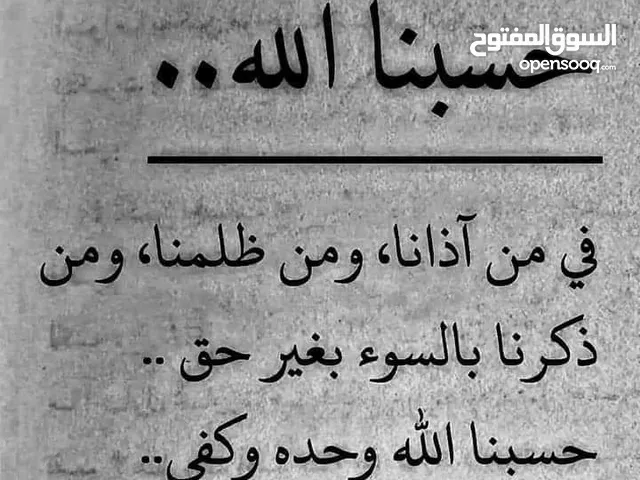 السوق المفتوح
opensooq.com
حسبنا الله..
في من آذانا، ومن ظلمنا، ومن
ذكرنا بالسوء بغير حق ..
حسبنا الله وحده وكفى..